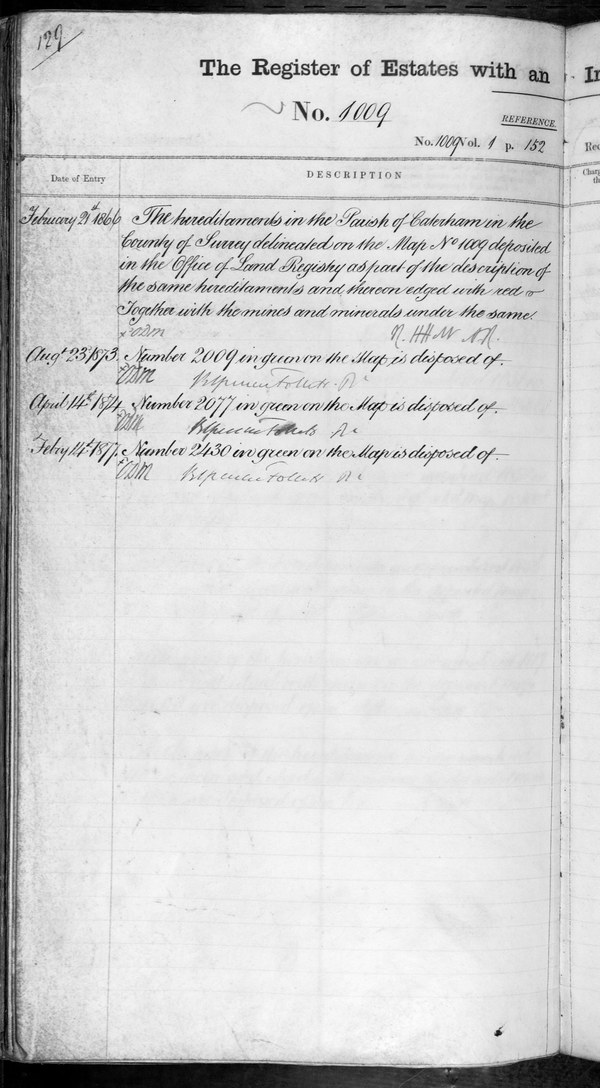 129
The Register of Estates with an In
No. 1009
REFERENCE.
No. 1009 Vol. 1 p. 152
Date of Entry
DESCRIPTION
February 21st 1866 The hereditaments in the Parish of Caterham in the
County of Surrey delineated on the Map No 1009 deposited
in the Office of Land Registry as part of the description of
the same hereditaments and thereon edged with red
Together with the mines and minerals under the same.
Augt 23d 1873. Number 2009 in green on the Map is disposed of.
April 14th 1874. Number 2077 in green on the Map is disposed of.
Febry 14th 1877. Number 2430 in green on the Map is disposed of.